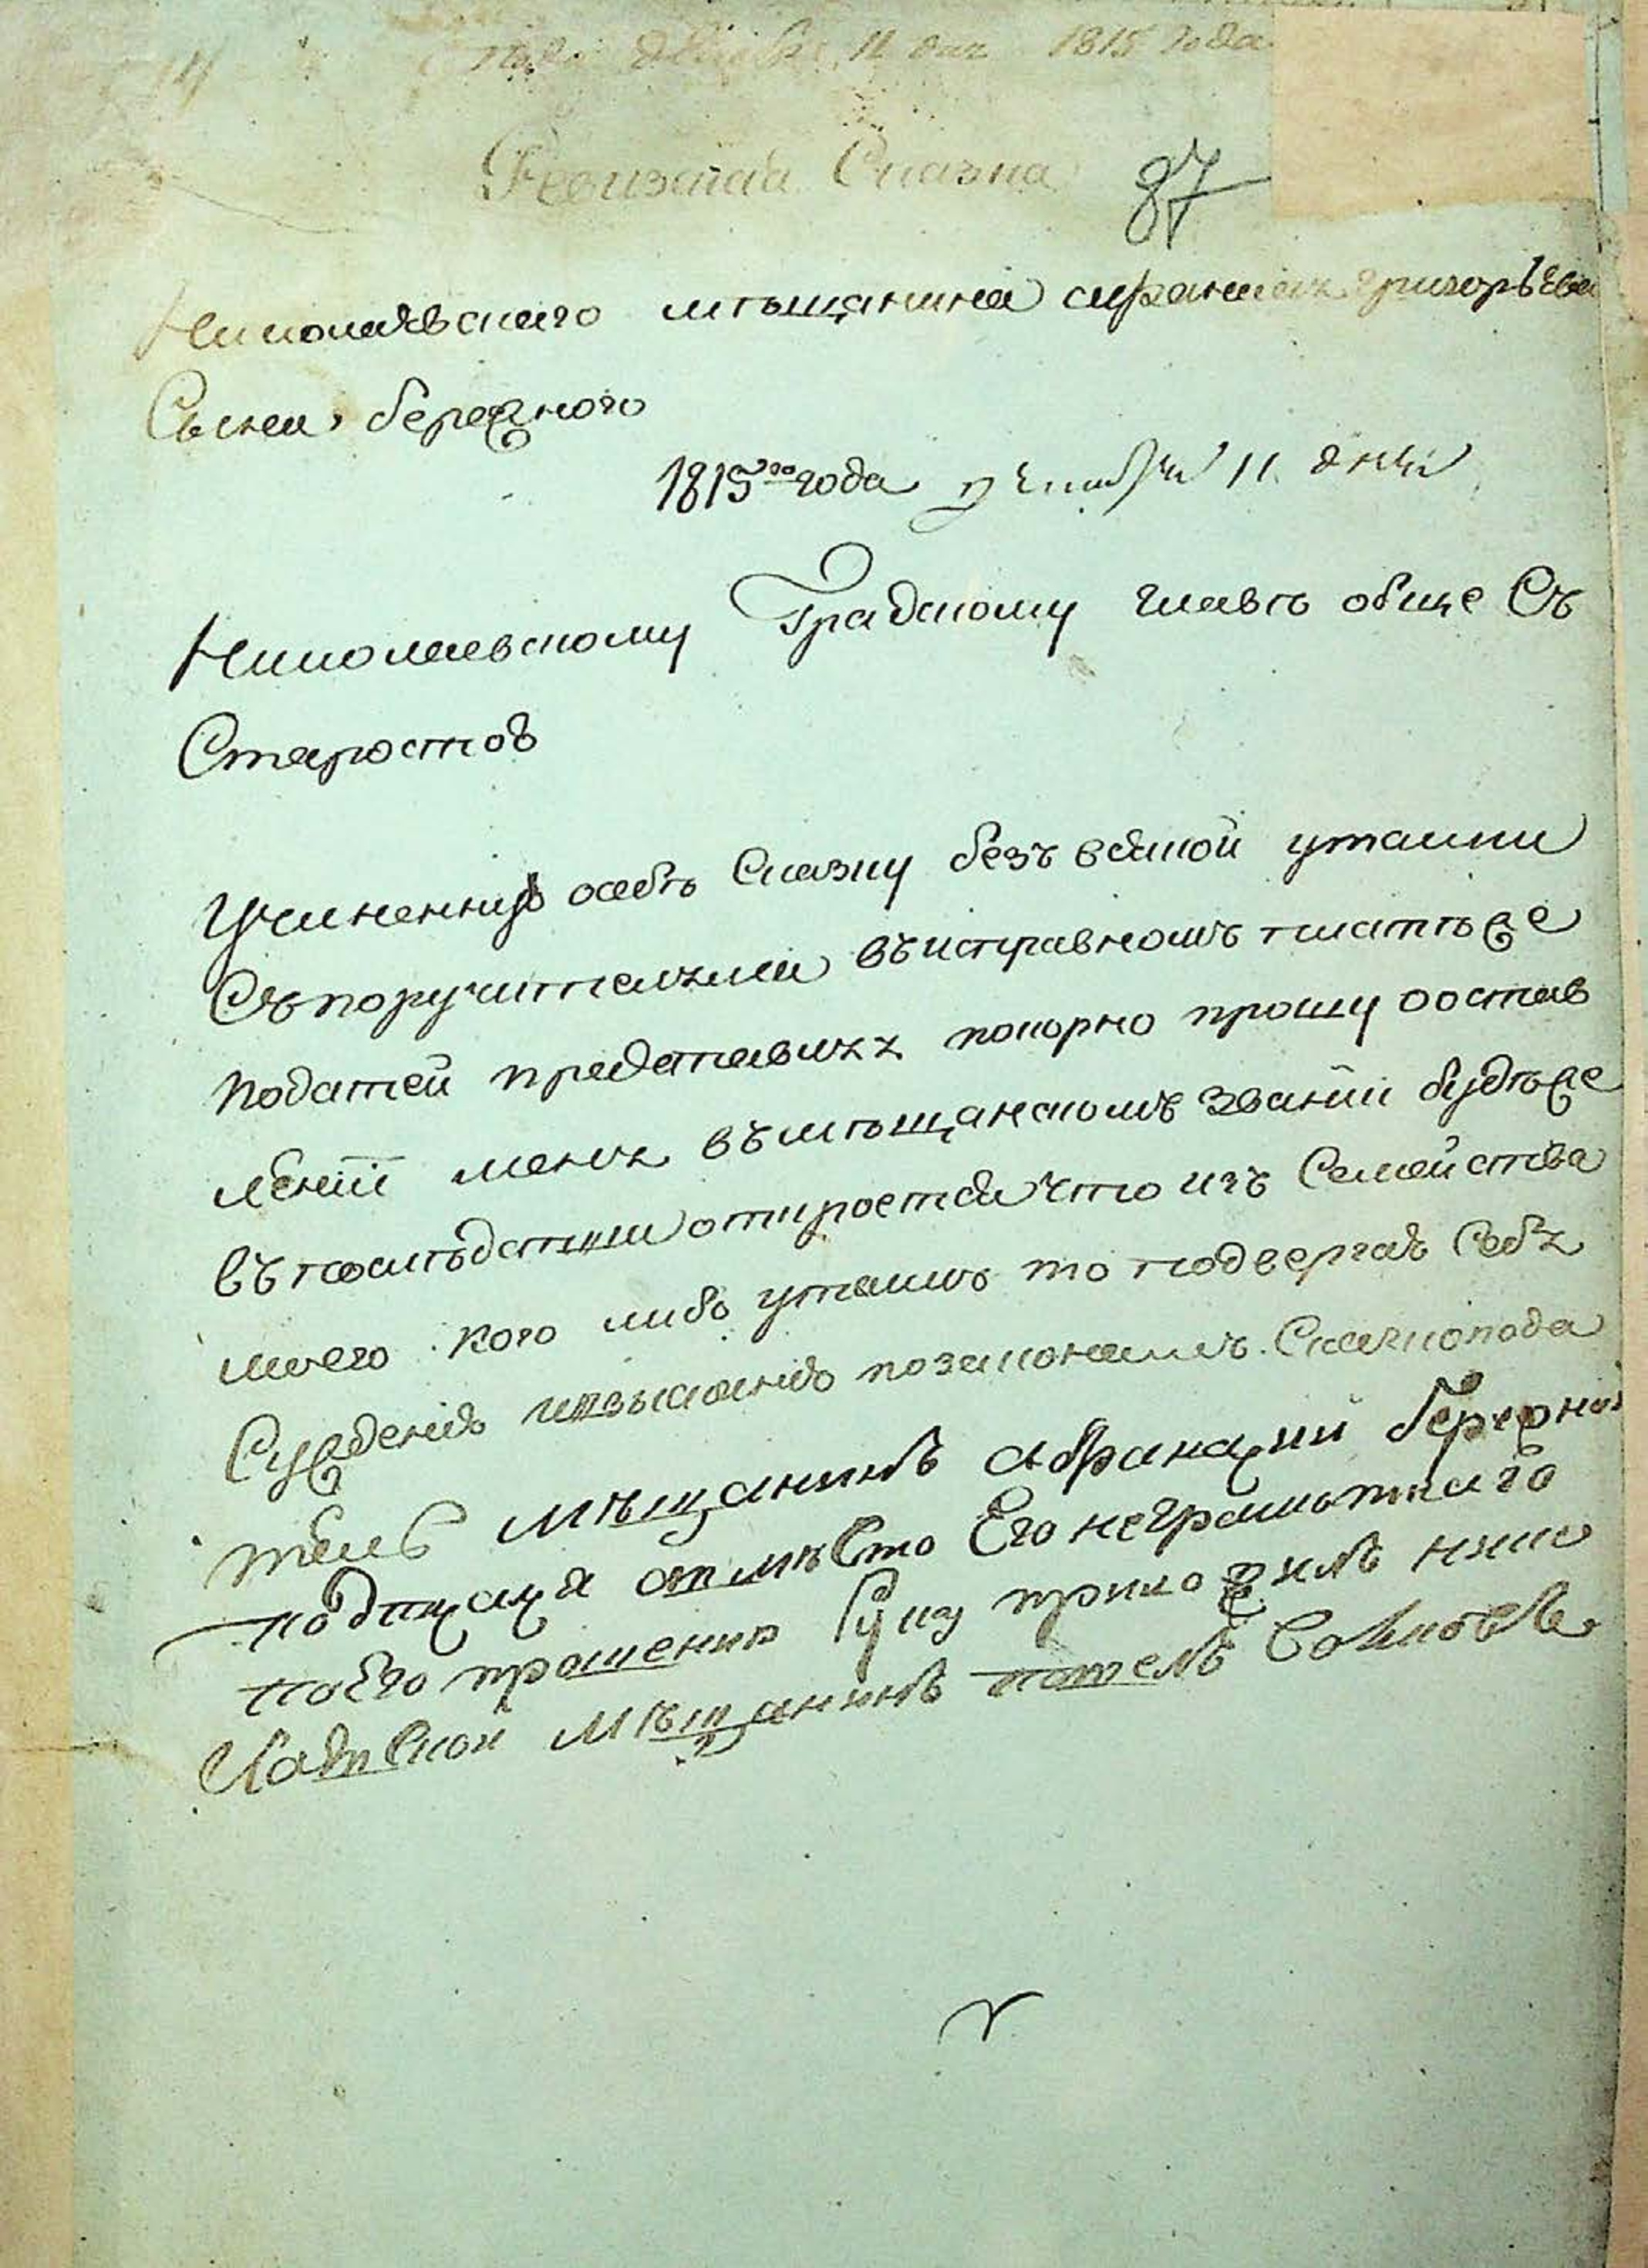 11 дня 1815 года
Ревизская Сказка
87
Николаевскаго мѣщанина Григорьева
Сына бережного
1815го года Декабря 11 дня
Николаевскому Градскому главѣ обще Съ
Старостою
Учиненную о себѣ Сказку безъ всякой утайки
Съ поручителями въ исправномъ платѣже
податей представляя покорно прошу о остав
лении меня въ мѣщанскомъ звании будѣже
въ послѣдствии откроется что изъ Семейства
моего кого либо утаилъ то подвергаю Себя
Суждению и взысканию по законамъ. Сказкопода
тель мѣщанинъ афанасий бережной
а въместо Его неграмотнаго
по Его прошению Руку приложилъ нико
лаевской мѣщанинъ